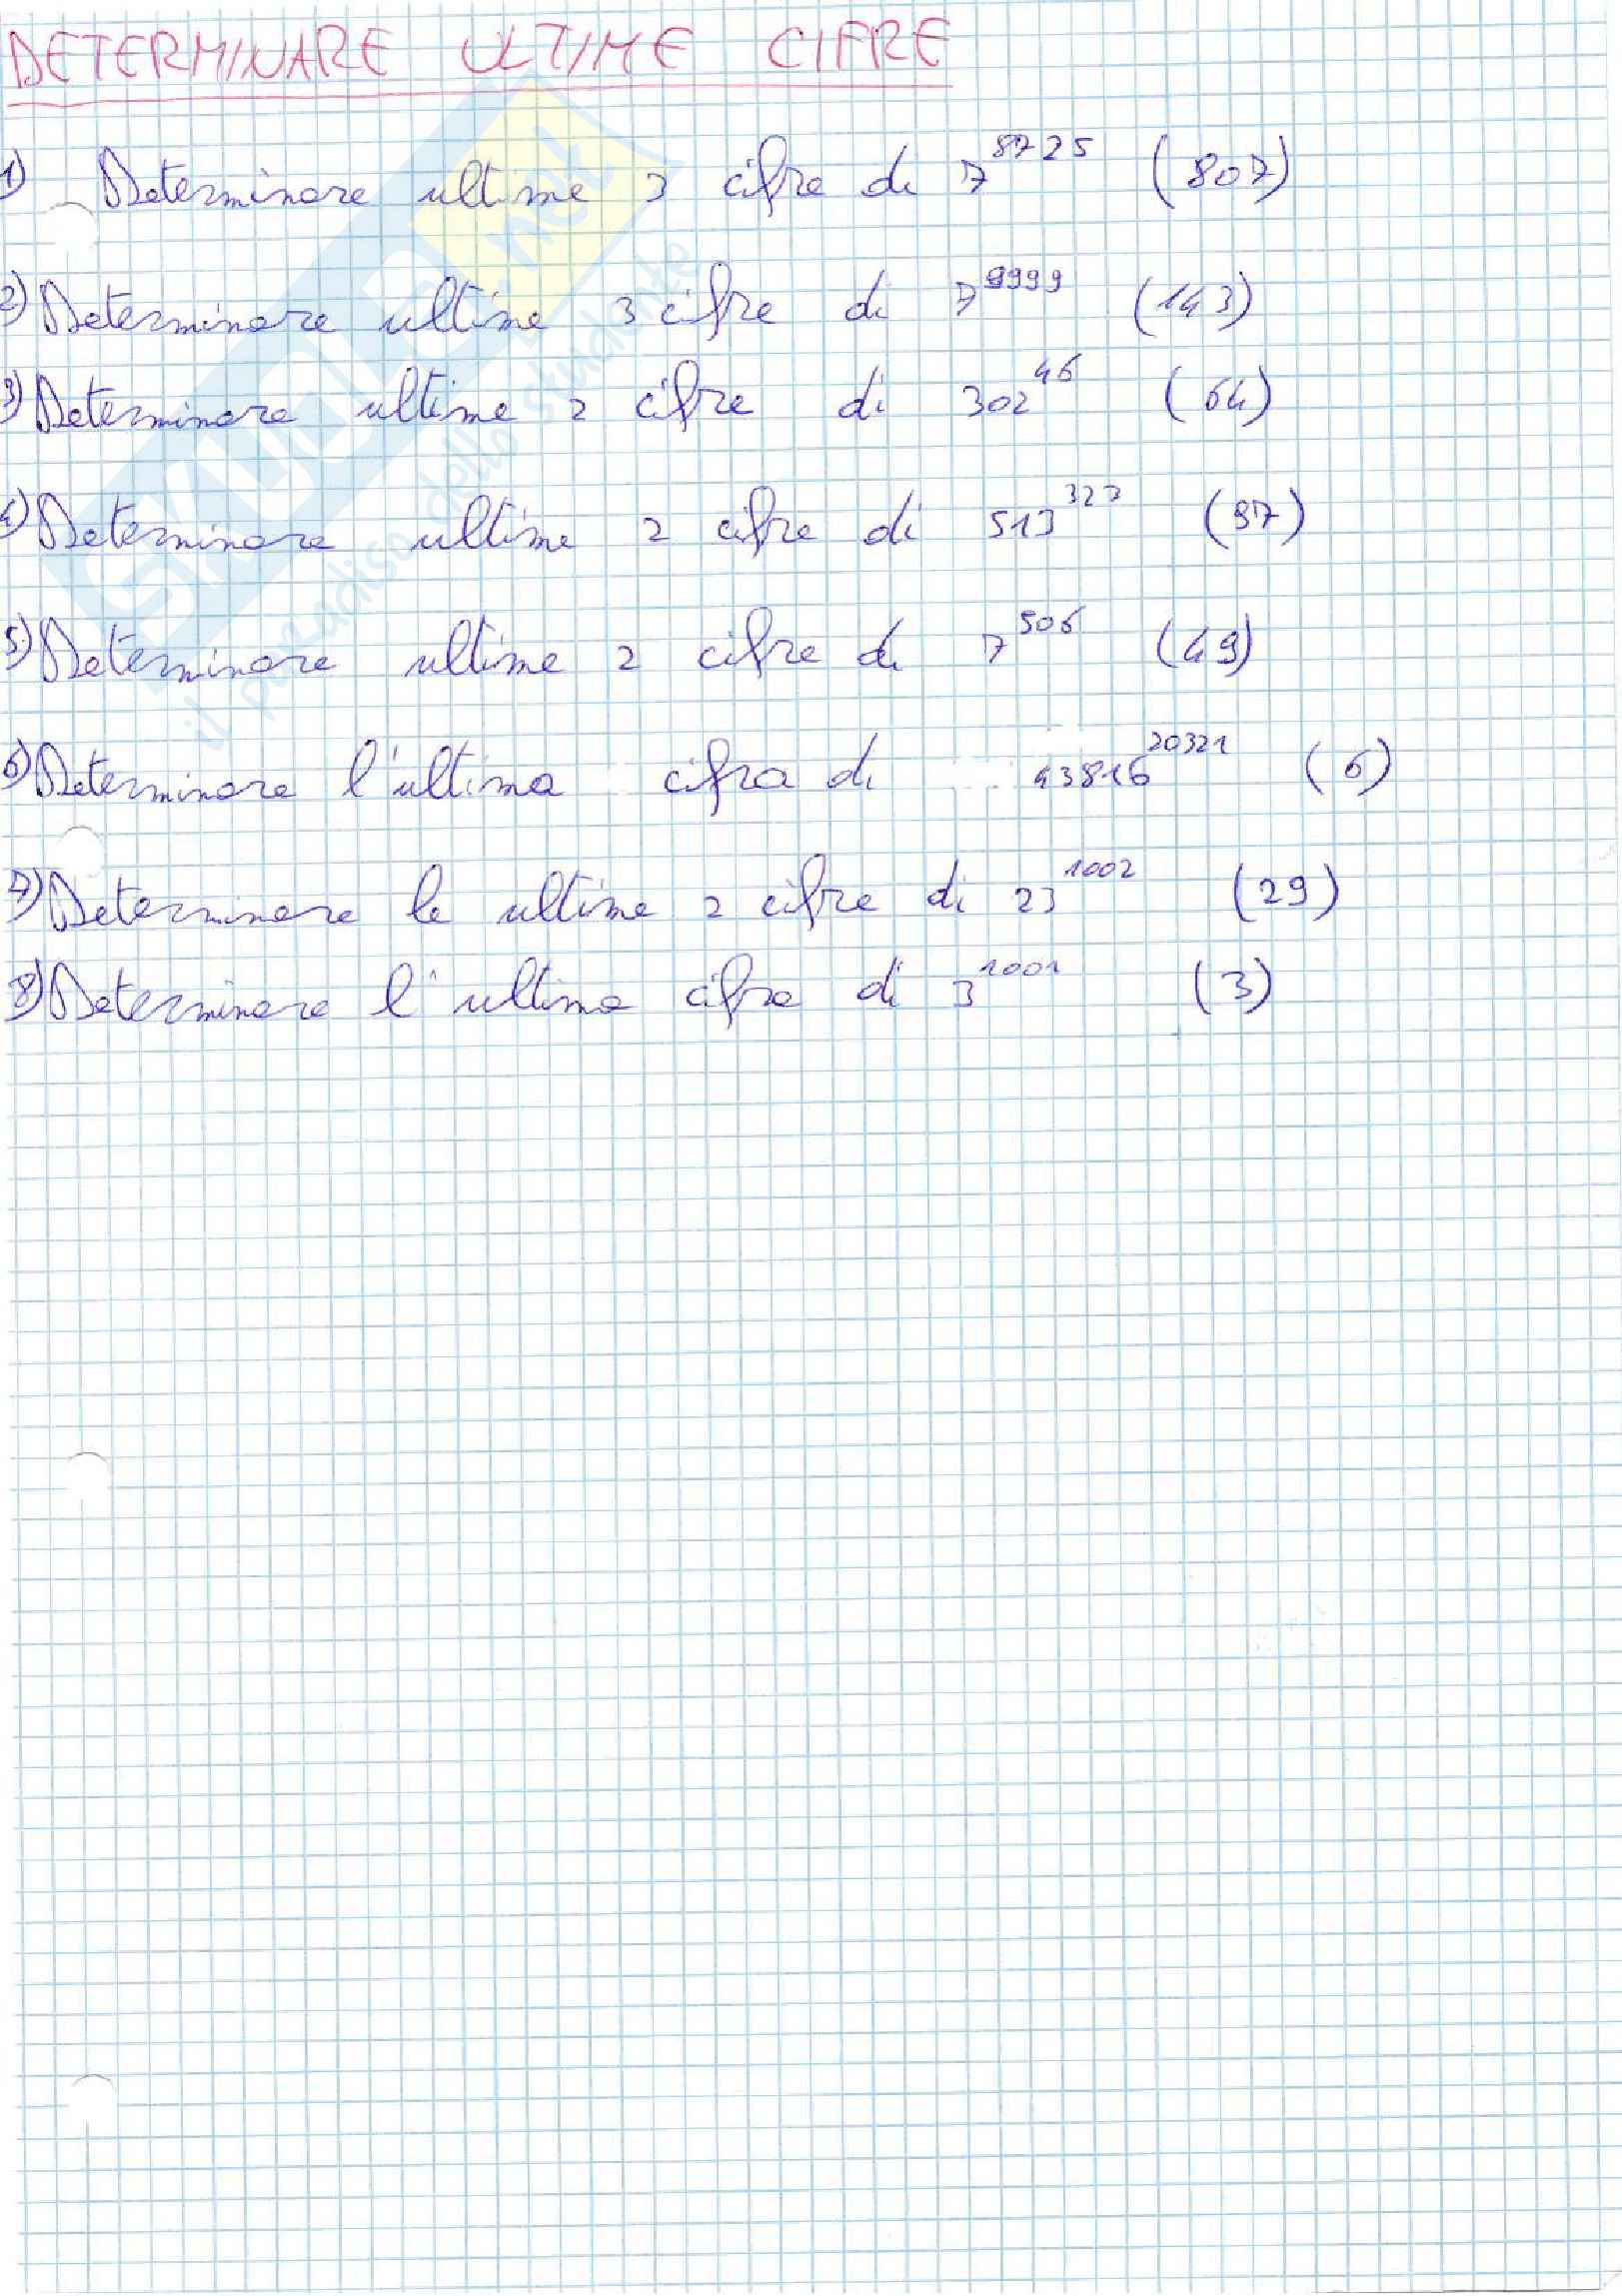 DETERMINARE ULTIME CIFRE
1) Determinare ultime 3 cifre di 7^8725 (807)
2) Determinare ultime 3 cifre di 7^9999 (143)
3) Determinare ultime 2 cifre di 302^46 (64)
4) Determinare ultime 2 cifre di 513^323 (97)
5) Determinare ultime 2 cifre di 7^506 (49)
6) Determinare l'ultima cifra di 43816^20321 (6)
7) Determinare le ultime 2 cifre di 23^1002 (29)
8) Determinare l'ultima cifra di 3^1001 (3)
SKUOLA.net
il paradiso dello studente